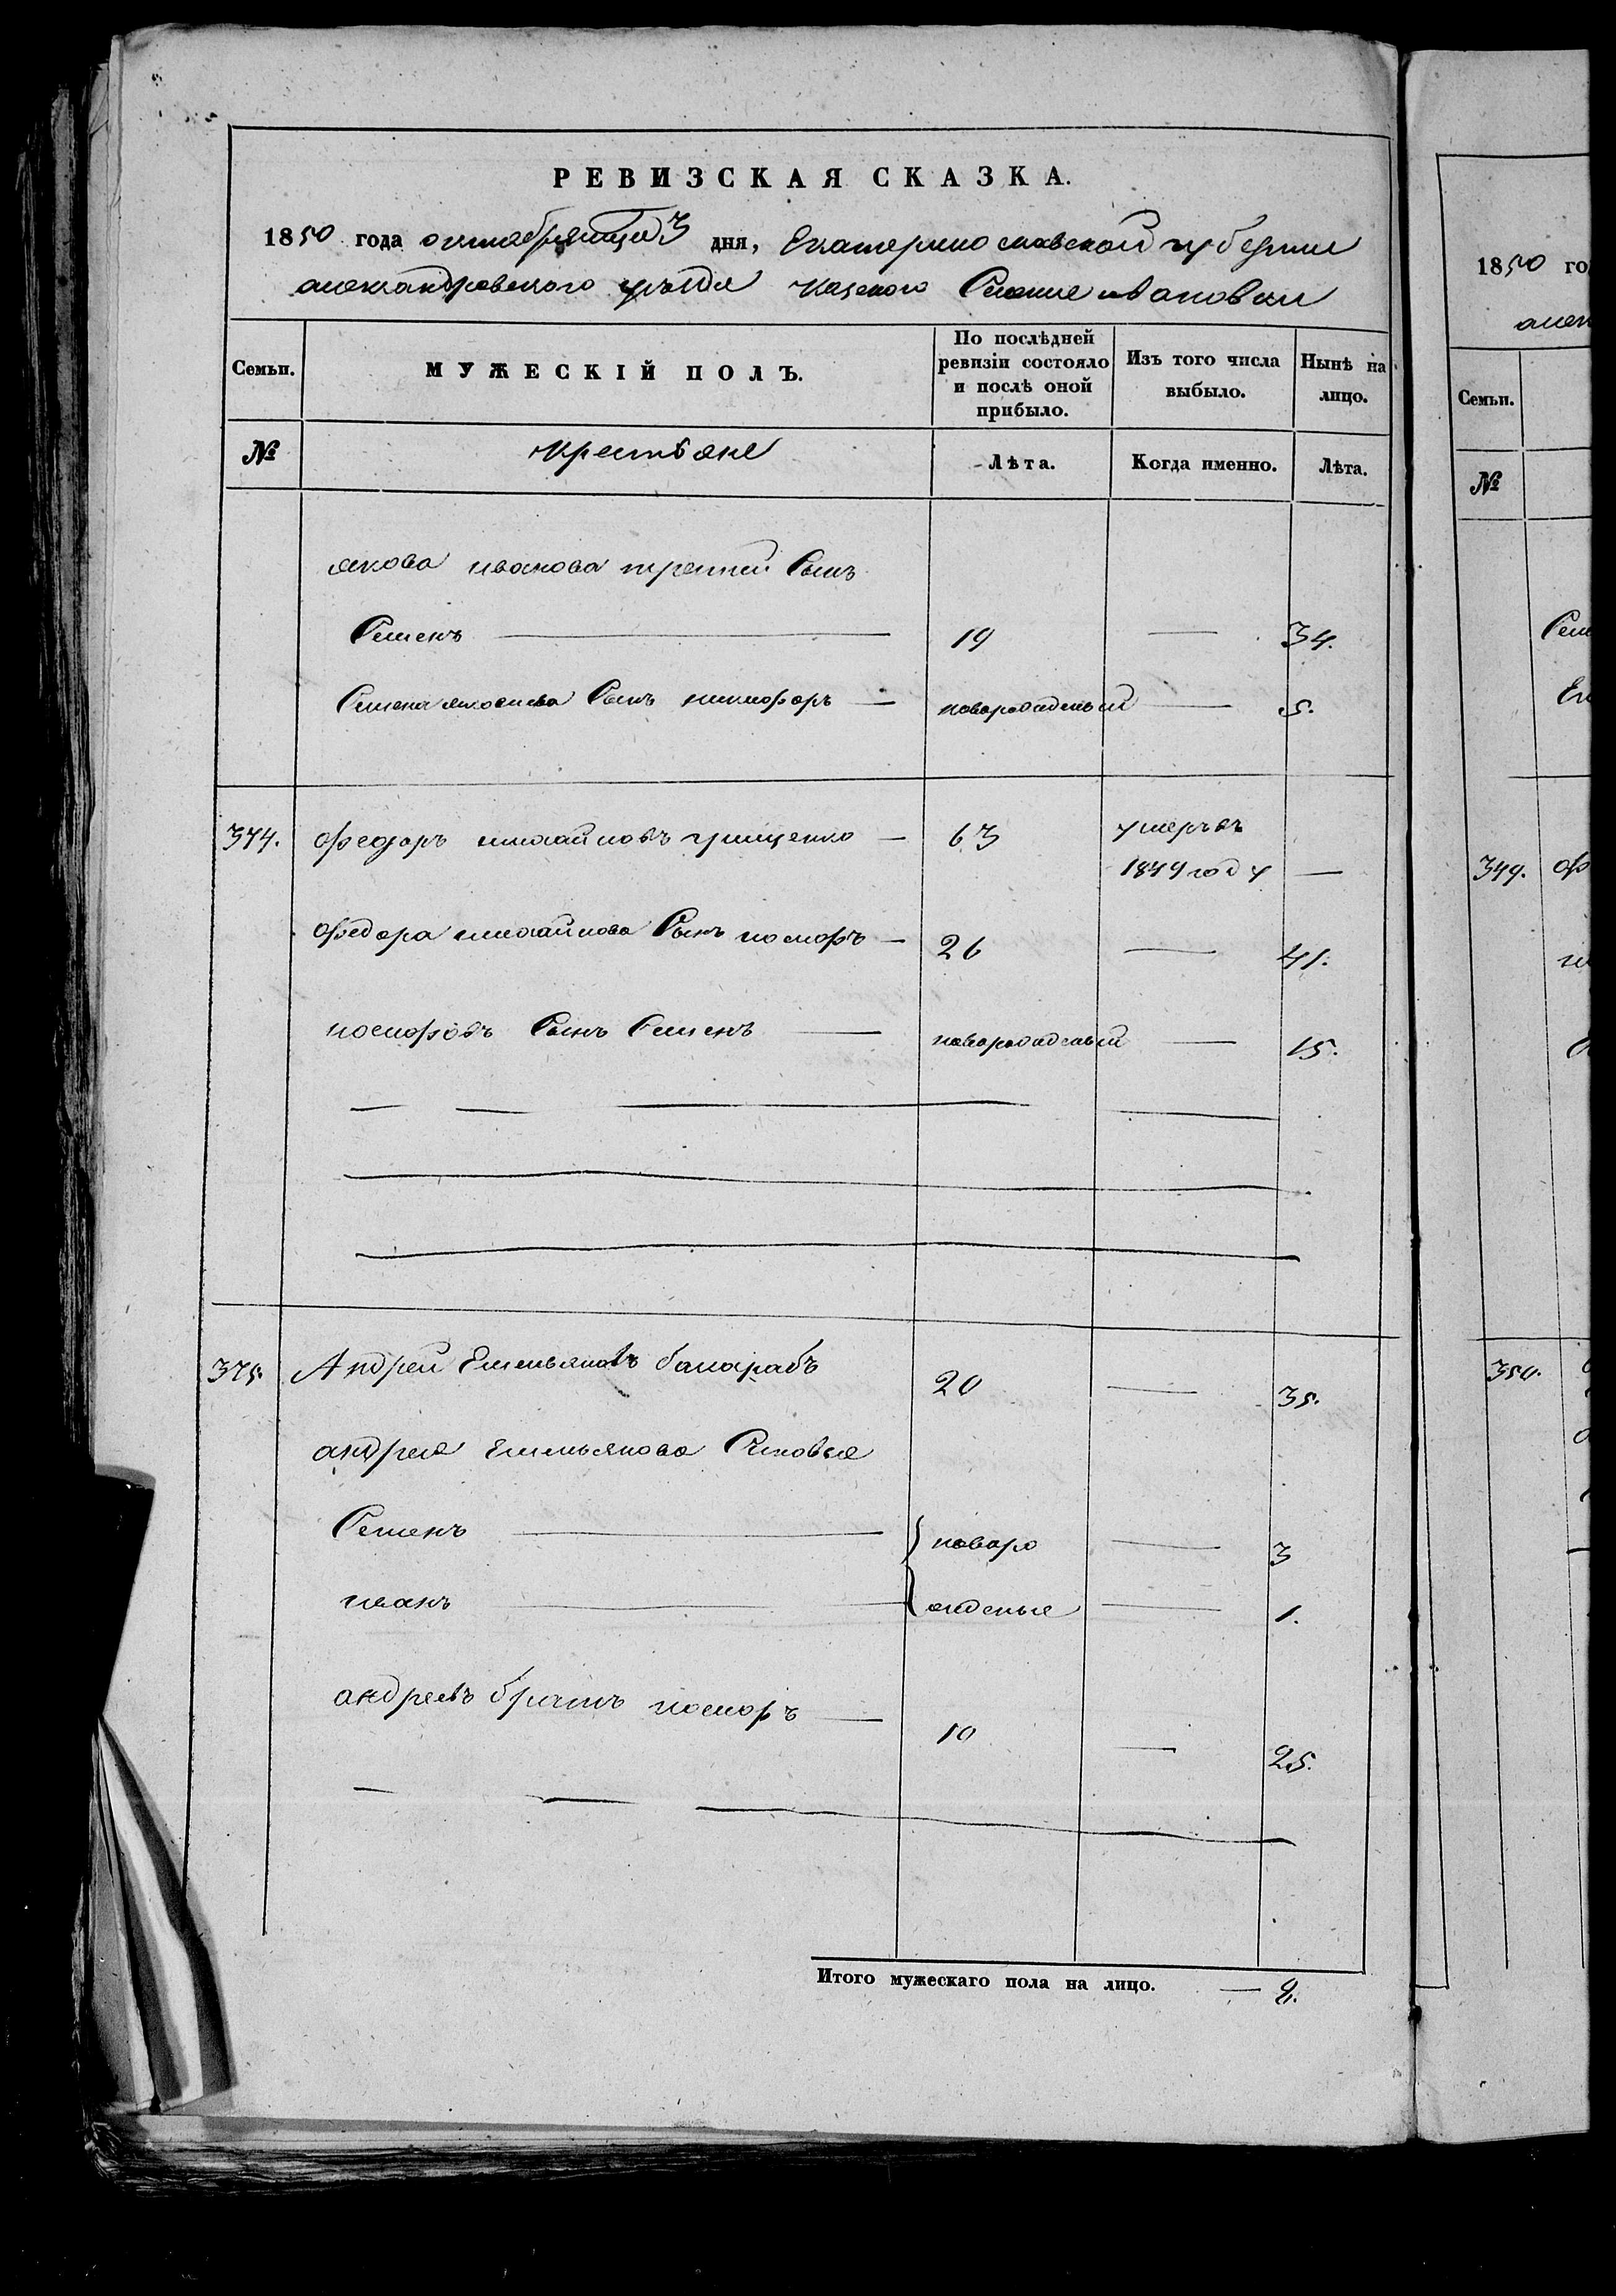 РЕВИЗСКАЯ СКАЗКА.
1850 года октября месяца 3 дня, Екатеринославской губернии
александровского уезда казеного Селения ивановки
Семьи. МУЖЕСКІЙ ПОЛЪ. По послѣдней ревизіи состояло и послѣ оной прибыло. Изъ того числа выбыло. Нынѣ на лицо.
№ крестьяне Лѣта. Когда именно. Лѣта.
якова иванова третий Сынъ
Семенъ 19 — 34.
Семена яковлева Сынъ никифоръ — новорожденый — 5.
374. федоръ михайловъ грищенко — 63 умеръ въ
1849 году —
федора михайлова Сынъ — 26 — 41.
Сынъ Семенъ — новорожденый — 15.
375. Андрей Емельяновъ 20 — 35.
андрея Емельянова Сыновья
Семенъ — новоро — 3
иванъ — жденые — 1.
андреевъ братъ — 10 — 25.
Итого мужескаго пола на лицо. — 8.
1850 го
алек
Семьи.
№
Сем
349. ф
350.